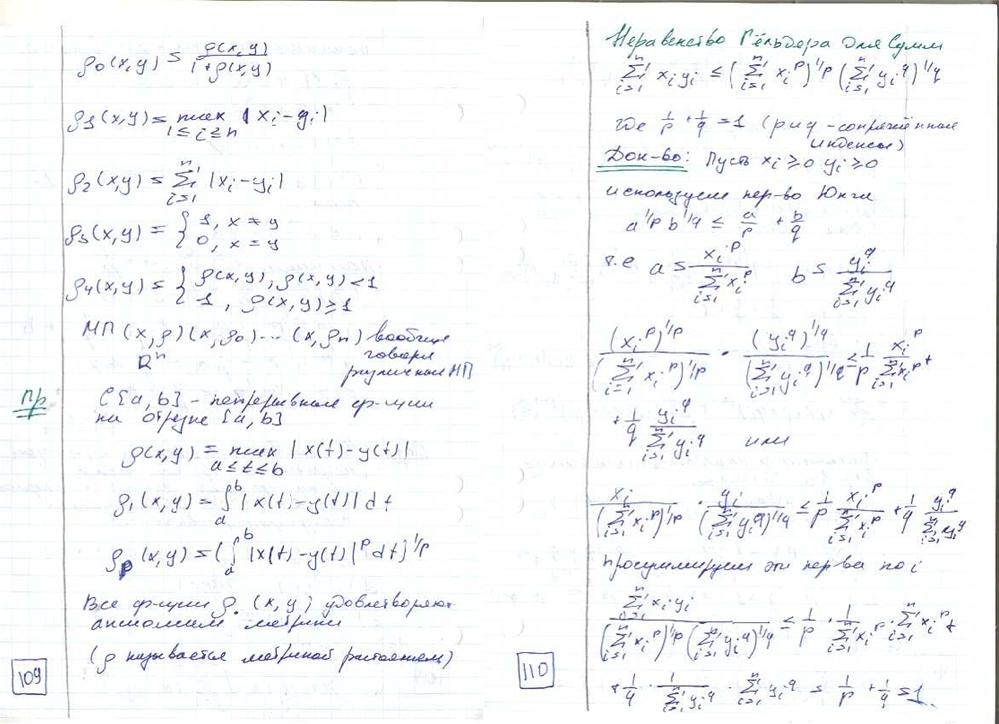 ρ₀(x,y) = ρ(x,y) / (1+ρ(x,y))
ρ₁(x,y) = max |xᵢ-yᵢ|
1≤i≥n
ρ₂(x,y) = ∑ᵢ₌₁ⁿ |xᵢ-yᵢ|
ρ₃(x,y) = { 1, x ≠ y
0, x = y
ρ₄(x,y) = { ρ(x,y), ρ(x,y)<1
1, ρ(x,y)≥1
МП (x,ρ) (x,ρ₀) ... (x,ρₙ) вообще
Rⁿ говоря
различные МП
Пр C[a,b] - непрерывные ф-ции
на отрезке [a,b]
ρ(x,y) = max |x(t)-y(t)|
a≤t≤b
ρ₁(x,y) = ∫ₐᵇ |x(t)-y(t)| dt
ρₚ(x,y) = (∫ₐᵇ |x(t)-y(t)|ᵖ dt)^1/p
Все ф-ции ρ.(x,y) удовлетворяют
аксиомам метрики
(ρ называется метрикой расстоянием)
109
Неравенство Гёльдера для сумм
∑ᵢ₌₁ⁿ xᵢyᵢ ≤ (∑ᵢ₌₁ⁿ xᵢ^p)^1/p (∑ᵢ₌₁ⁿ yᵢ^q)^1/q
где 1/p + 1/q = 1 (p и q - сопряжённые
индексы)
Док-во: Пусть xᵢ≥0 yᵢ≥0
используем нер-во Юнга
a^1/p b^1/q ≤ a/p + b/q
т.е a = xᵢ^p / ∑ᵢ₌₁ⁿ xᵢ^p b = yᵢ^q / ∑ᵢ₌₁ⁿ yᵢ^q
(xᵢ^p)^1/p / (∑ᵢ₌₁ⁿ xᵢ^p)^1/p · (yᵢ^q)^1/q / (∑ᵢ₌₁ⁿ yᵢ^q)^1/q ≤ 1/p xᵢ^p / ∑ᵢ₌₁ⁿ xᵢ^p +
+ 1/q yᵢ^q / ∑ᵢ₌₁ⁿ yᵢ^q или
xᵢ / (∑ᵢ₌₁ⁿ xᵢ^p)^1/p · yᵢ / (∑ᵢ₌₁ⁿ yᵢ^q)^1/q ≤ 1/p xᵢ^p / ∑ᵢ₌₁ⁿ xᵢ^p + 1/q yᵢ^q / ∑ᵢ₌₁ⁿ yᵢ^q
просуммируем эти нер-ва по i
∑ᵢ₌₁ⁿ xᵢyᵢ / (∑ᵢ₌₁ⁿ xᵢ^p)^1/p (∑ᵢ₌₁ⁿ yᵢ^q)^1/q ≤ 1/p · 1 / ∑ᵢ₌₁ⁿ xᵢ^p · ∑ᵢ₌₁ⁿ xᵢ^p +
+ 1/q · 1 / ∑ᵢ₌₁ⁿ yᵢ^q · ∑ᵢ₌₁ⁿ yᵢ^q = 1/p + 1/q = 1.
110